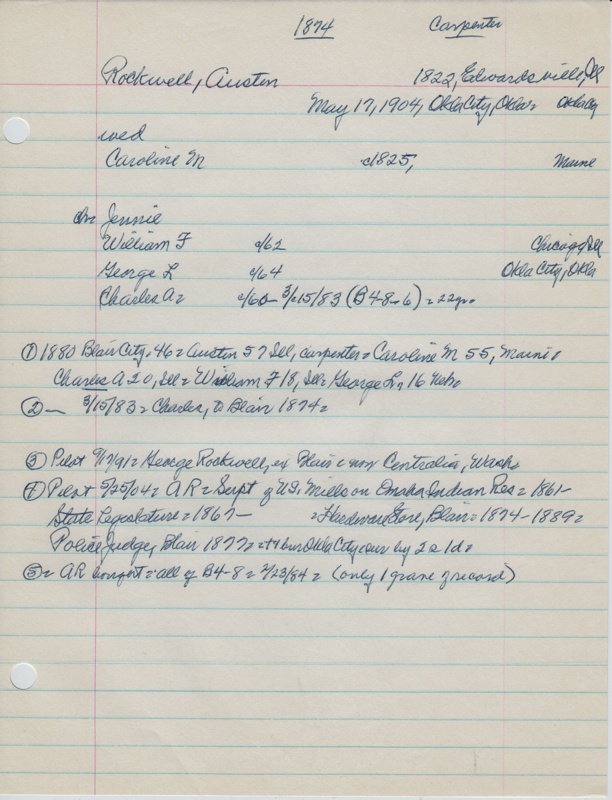 1874 Carpenter
Rockwell, Austin 1822, Edwardsville, Ill
May 17, 1904, Okla City, Okla Okla City
wed
Caroline M c1825, Maine
chn Jennie
William F c/62 Chicago, Ill
George L c/64 Okla City, Okla
Charles A c/60 - 3/15/83 (B4-8-6) = 22yr.
① 1880 Blair City - 46 = Austin 57 Ill, carpenter = Caroline M 55, Maine
Charles A 20, Ill = William F 18, Ill = George L 16 Nebr
② — 3/15/83 = Charles, to Blair 1874 =
③ Pilot 9/17/91 = George Rockwell, ex Blair now Centralia, Wash
④ Pilot 5/25/04 = AR = Supt of US Mills on Omaha Indian Res = 1861-
State Legislature = 1867 - = Hardware Store, Blair = 1874-1889 =
Police Judge, Blair 1877 = Okla City by 2 s 1 d =
⑤ = AR bought = all of B4-8 = 2/23/84 = (only 1 grave of record)